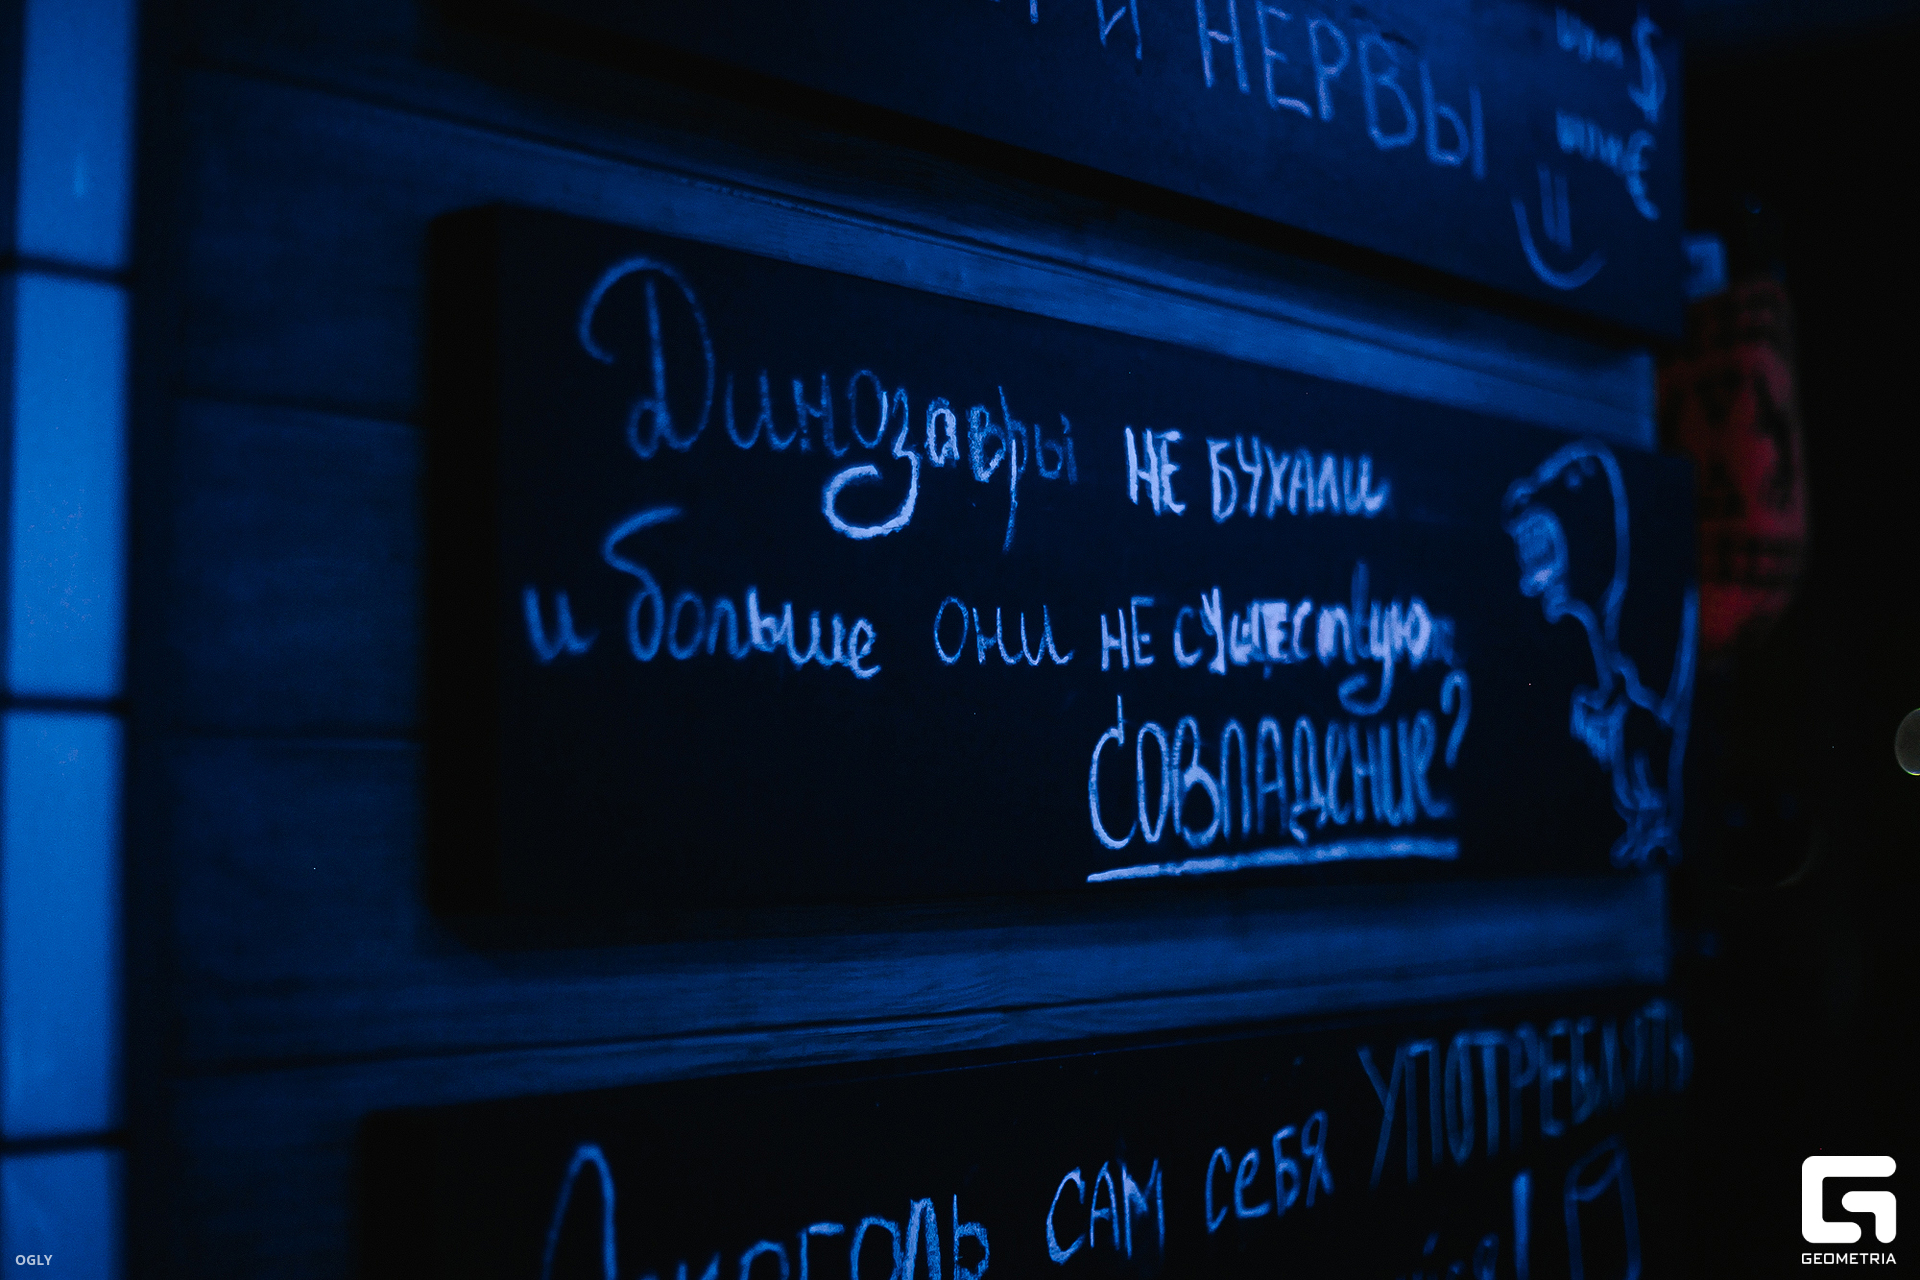 И НЕРВЫ
или $
или €
Динозавры НЕ БУХАЛИ
и больше они НЕ существуют
СОВПАДЕНИЕ?
Алкоголь САМ СЕБЯ УПОТРЕБЛЯТЬ
OGLY
GEOMETRIA